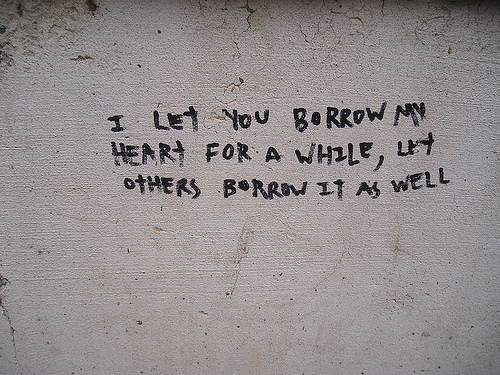 I LET YOU BORROW MY
HEART FOR A WHILE, LET
OTHERS BORROW IT AS WELL